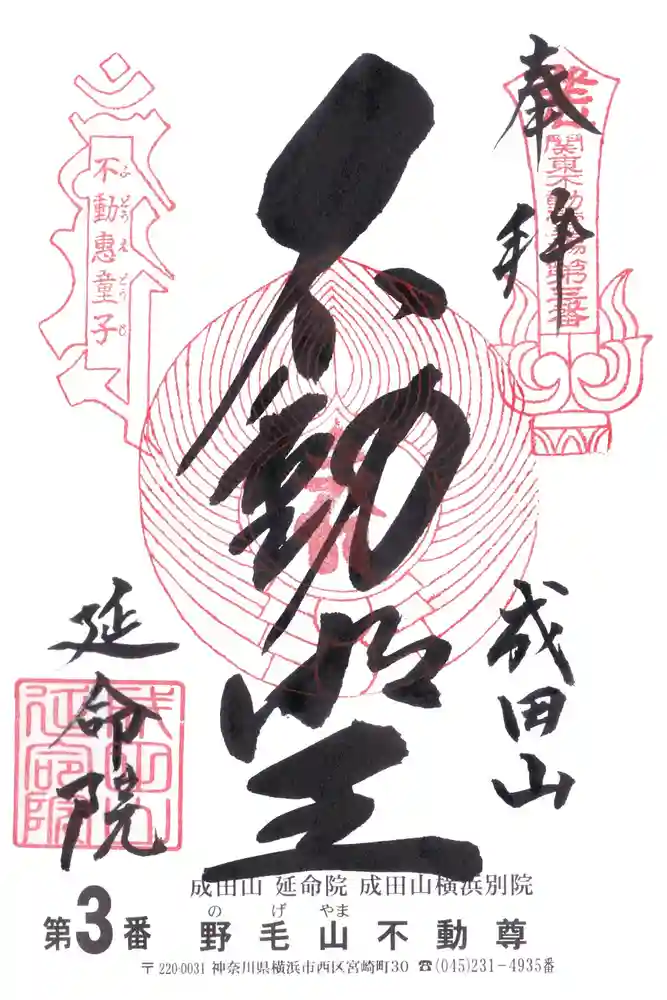 奉拝
関東不動霊場第三番
不動明王
不動惠童子
ふどうえどうじ
成田山
延命院
成田山 延命院 成田山横浜別院
第3番
のげやま
野毛山不動尊
〒220-0031 神奈川県横浜市西区宮崎町30 ☎(045)231-4935番